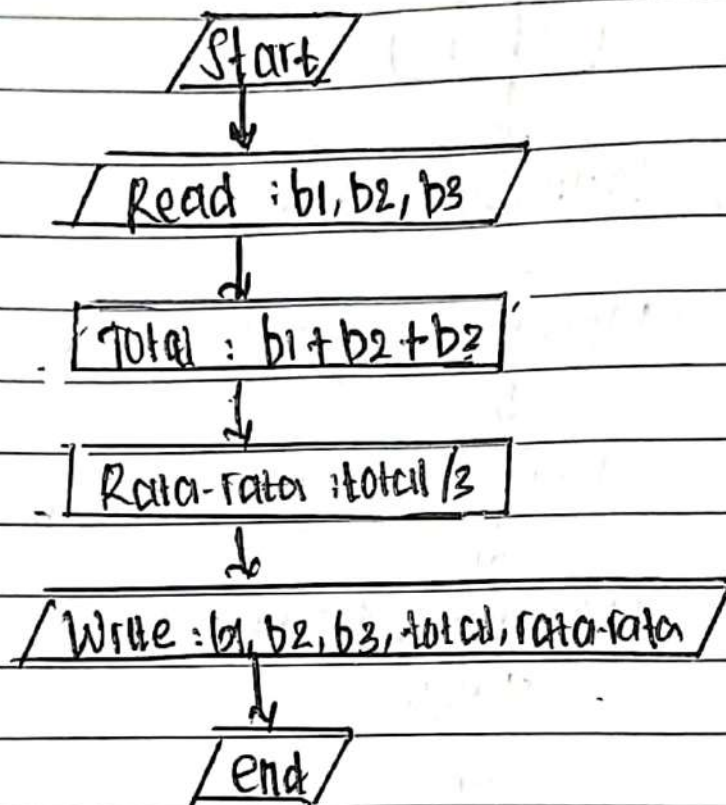 Start
Read : b1, b2, b3
Total : b1 + b2 + b3
Rata-rata : total / 3
Write : b1, b2, b3, total, rata-rata
end